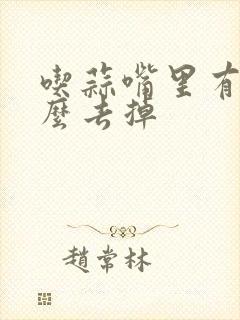 喫蒜嘴里有
麼去掉
趙常林